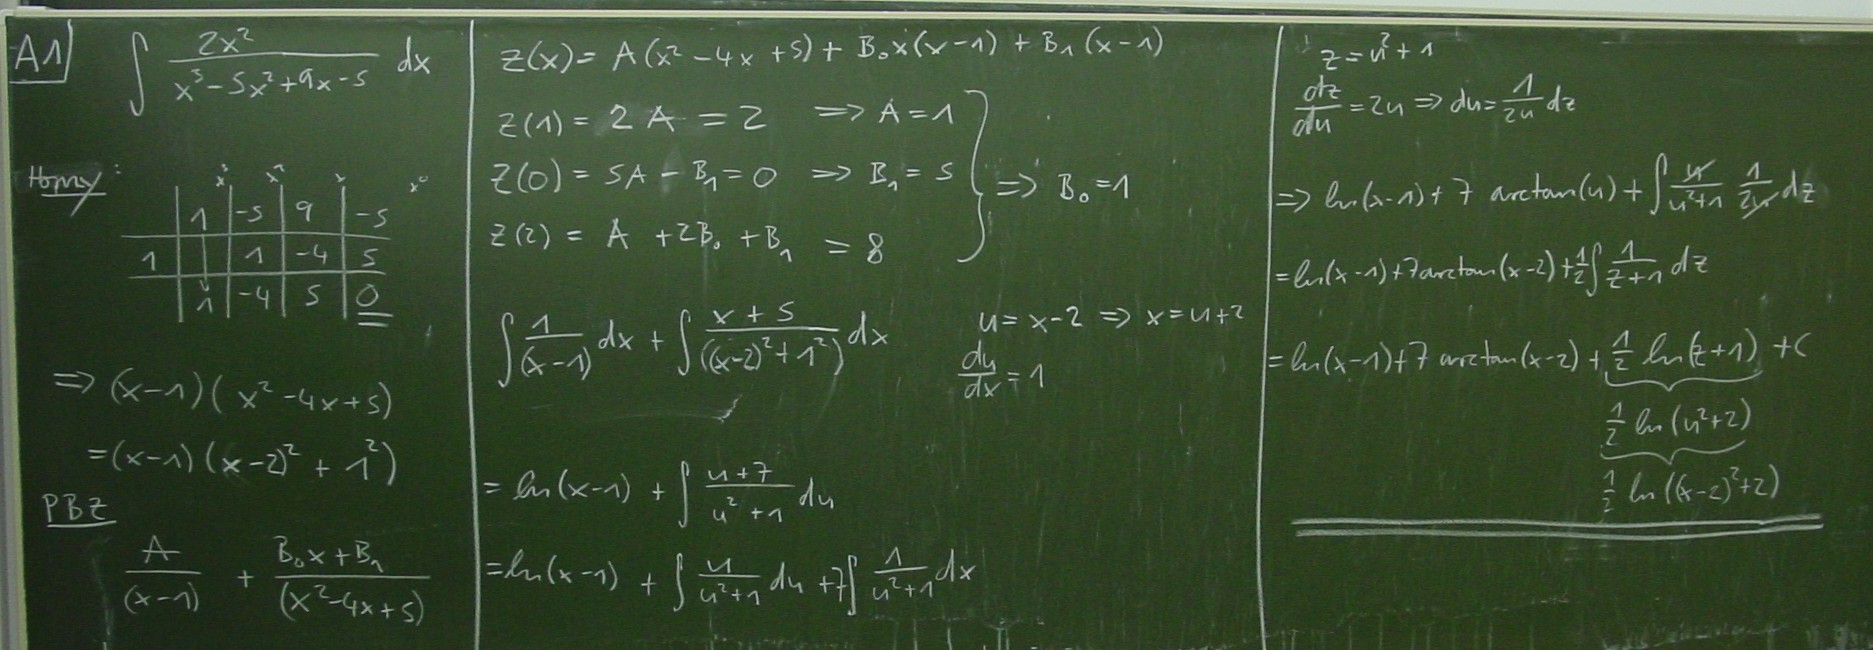 A1 ∫ 2x² / (x³ - 5x² + 9x - 5) dx
x³ x² x x⁰
1 -5 9 -5
1 1 -4 5
1 -4 5 0
=> (x-1)(x² -4x+5)
=(x-1)((x-2)² + 1²)
PBZ
A/(x-1) + (B₀x+B₁)/(x²-4x+5)
Z(x)= A(x² -4x +5) + B₀x(x-1) + B₁(x-1)
Z(1) = 2A = 2 => A=1
Z(0) = 5A - B₁ = 0 => B₁ = 5
=> B₀=1
Z(2) = A +2B₀ +B₁ = 8
∫ 1/(x-1) dx + ∫ (x+5)/((x-2)²+1²) dx
u= x-2 => x=u+2
du/dx = 1
= ln(x-1) + ∫ (u+7)/(u²+1) du
=ln(x-1) + ∫ u/(u²+1) du +7∫ 1/(u²+1) dx
z=u²+1
dz/du =2u => du= 1/2u dz
=> ln(x-1)+7 arctan(u) + ∫ u/(u²+1) 1/2u dz
=ln(x-1)+7arctan(x-2)+½∫ 1/(z+1) dz
=ln(x-1)+7 arctan(x-2) + ½ ln(z+1) +C
½ ln(u²+2)
½ ln((x-2)²+2)